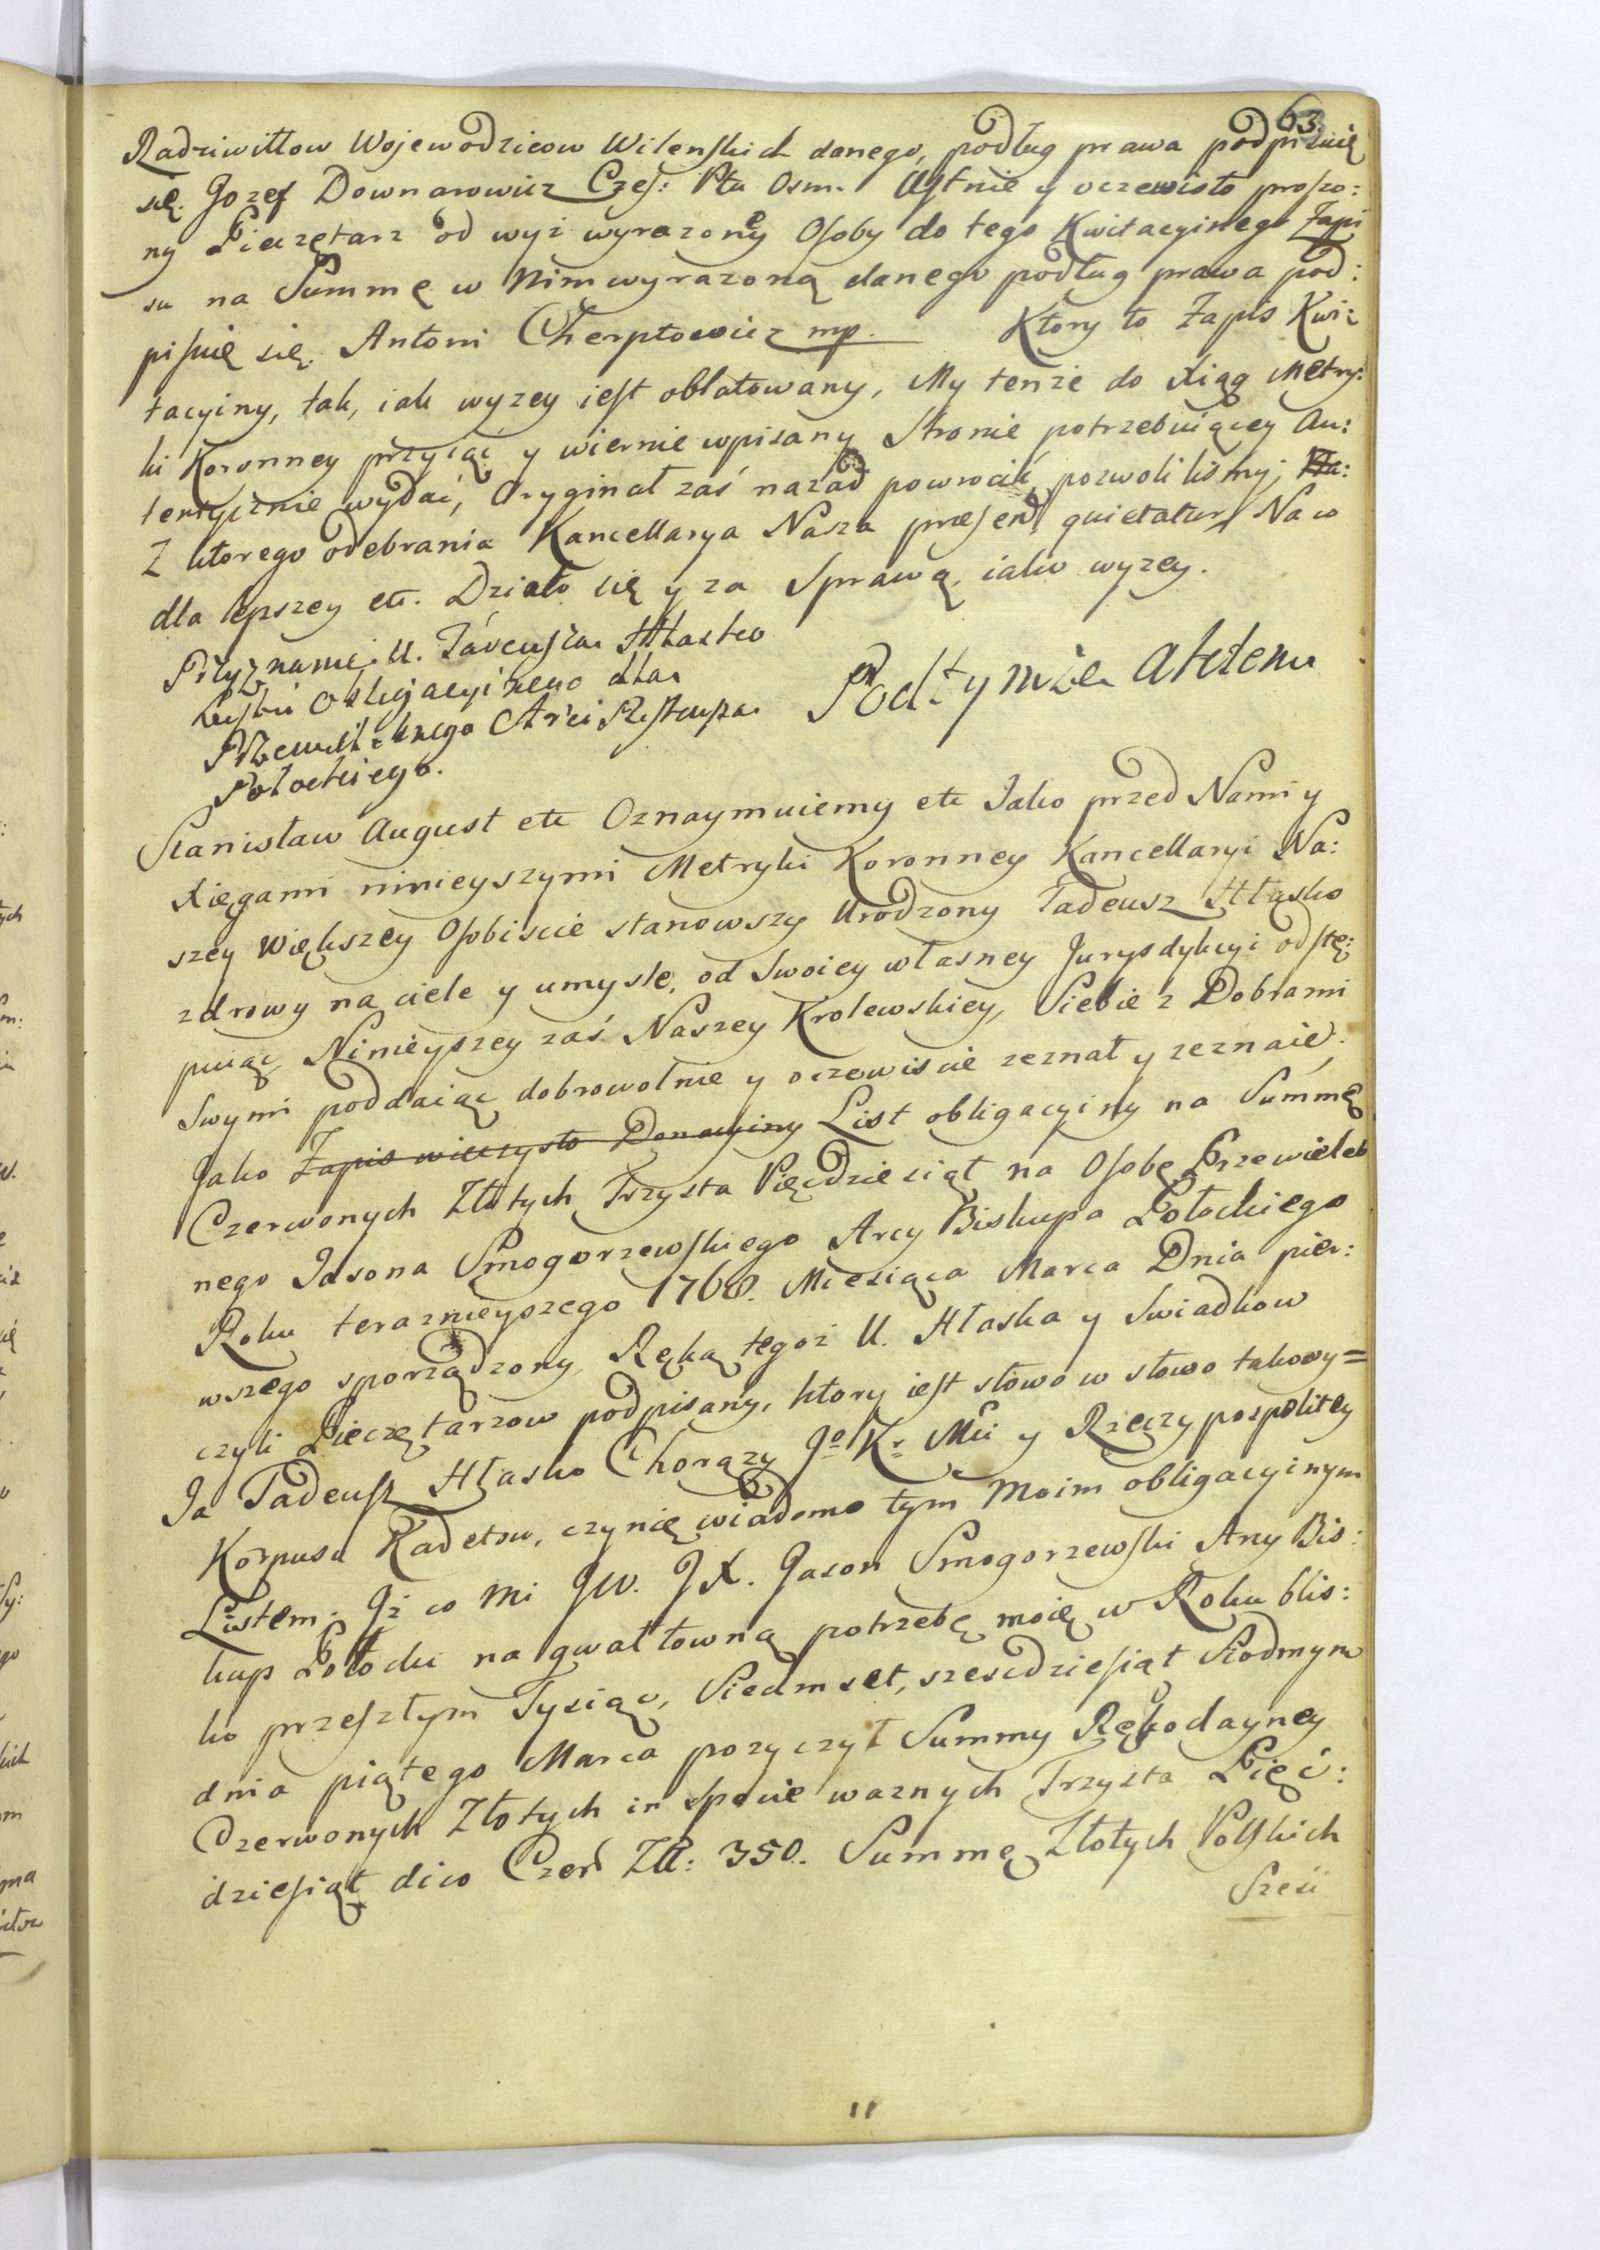 63.
Radziwiłłow Wojewodzicow Wilenskich danego, podług prawa podpisuię
się. Jozef Downarowicz Czes: Ptu Osm. Ustnie y oczewisto proszo:
ny Pieczętarz od wyż wyrazoney Osoby do tego Kwitacyinego Zapi
su na Summę w Nim wyrazoną danego podług prawa pod:
pisuię się. Antoni Chreptowicz mp. Ktory to Zapis Kwi:
tacyiny, tak, iak wyzey iest oblatowany, My tenże do Xiąg Metry:
ki Koronney przyiąć y wiernie wpisany Stronie potrzebuiącey Au:
tentycznie wydać, Oryginał zaś nazad powrocić pozwoliliśmy;
Z ktorego odebrania Kancellarya Nasza præsend quietatur Na co
dla lepszey etc. Działo się y za Sprawą iako wyzey.
Przyznanie U. Tadeusza Hłasko
Listu Obligacyinego dla
Przewielebnego Arci Biskupa
Połockiego.
Pod tymże Aktem
Stanisław August etc Oznaymuiemy etc Jako przed Nami y
Xięgami ninieyszymi Metryki Koronney Kancellaryi Na:
szey Większey Osobiscie stanowszy Urodzony Tadeusz Hłasko
zdrowy na ciele y umysle, od Swoiey własney Jurysdykcyi odstę:
puiąc, Ninieyszey zaś Naszey Krolewskiey, Siebie z Dobrami
Swymi poddaiąc dobrowolnie y oczewiscie zeznał y zeznaie.
Jako Zapis wieczysto Donacyiny List obligacyiny na Summę
Czerwonych Złotych Trzysta Pięcdziesiąt na Osobę Przewieleb
nego Jasona Smogorzewskiego Arcy Biskupa Połockiego
Roku terazneyszego 1768. Miesiąca Marca Dnia pier:
wszego sporządzony, Ręką tegoż U. Hłaska y Swiadkow
czyli Pieczętarzow podpisany, ktory iest słowo w słowo takowy=
Ja Tadeusz Hłasko Chorąży Jo Kr Mci y Rzeczypospolitey
Korpusu Kadetow, czynię wiadomo tym Moim obligacyinym
Listem. Jż co mi JW. JX. Jason Smogorzewski Arcy Bis:
kup Połocki na gwałtowną potrzebę moię w Roku blis:
ko przeszłym Tysiąc, Siedmset, szescdziesiąt Siodmym
dnia piątego Marca pozyczył Summy Rękodayney
Czerwonych Złotych in specie waznych Trzysta Pięć:
dziesiąt dico Czer Zł: 350. Summę Złotych Polskich
Sześć
11